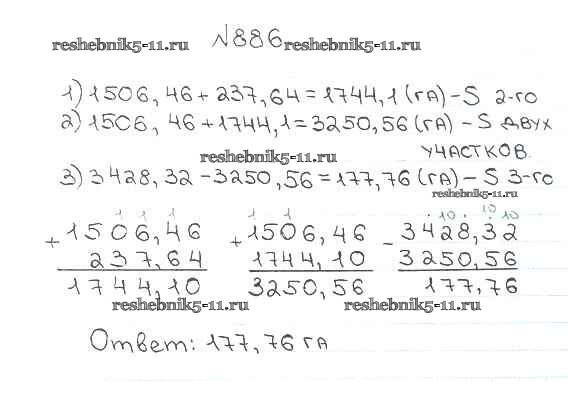 reshebnik5-11.ru №886 reshebnik5-11.ru
1) 1506,46 + 237,64 = 1744,1 (га) – S 2-го
2) 1506,46 + 1744,1 = 3250,56 (га) – S двух
участков
reshebnik5-11.ru
3) 3428,32 – 3250,56 = 177,76 (га) – S 3-го
reshebnik5-11.ru
1 1 1 1 1 . 10 . 10 10
+ 1506,46 + 1506,46 – 3428,32
237,64 1744,10 3250,56
1744,10 3250,56 177,76
reshebnik5-11.ru reshebnik5-11.ru
Ответ: 177,76 га